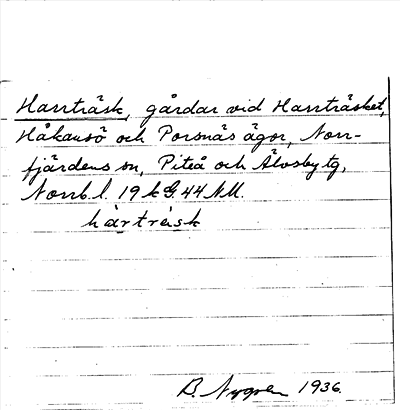 Harrträsk, gårdar vid Harrträsket,
Håkansö och Porsnäs ägor, Norr-
fjärdens sn, Piteå och Älvsby tg,
Norrb. l. 19 k G. 44 NM.
hàrtrǻsk
B. Nygren 1936.